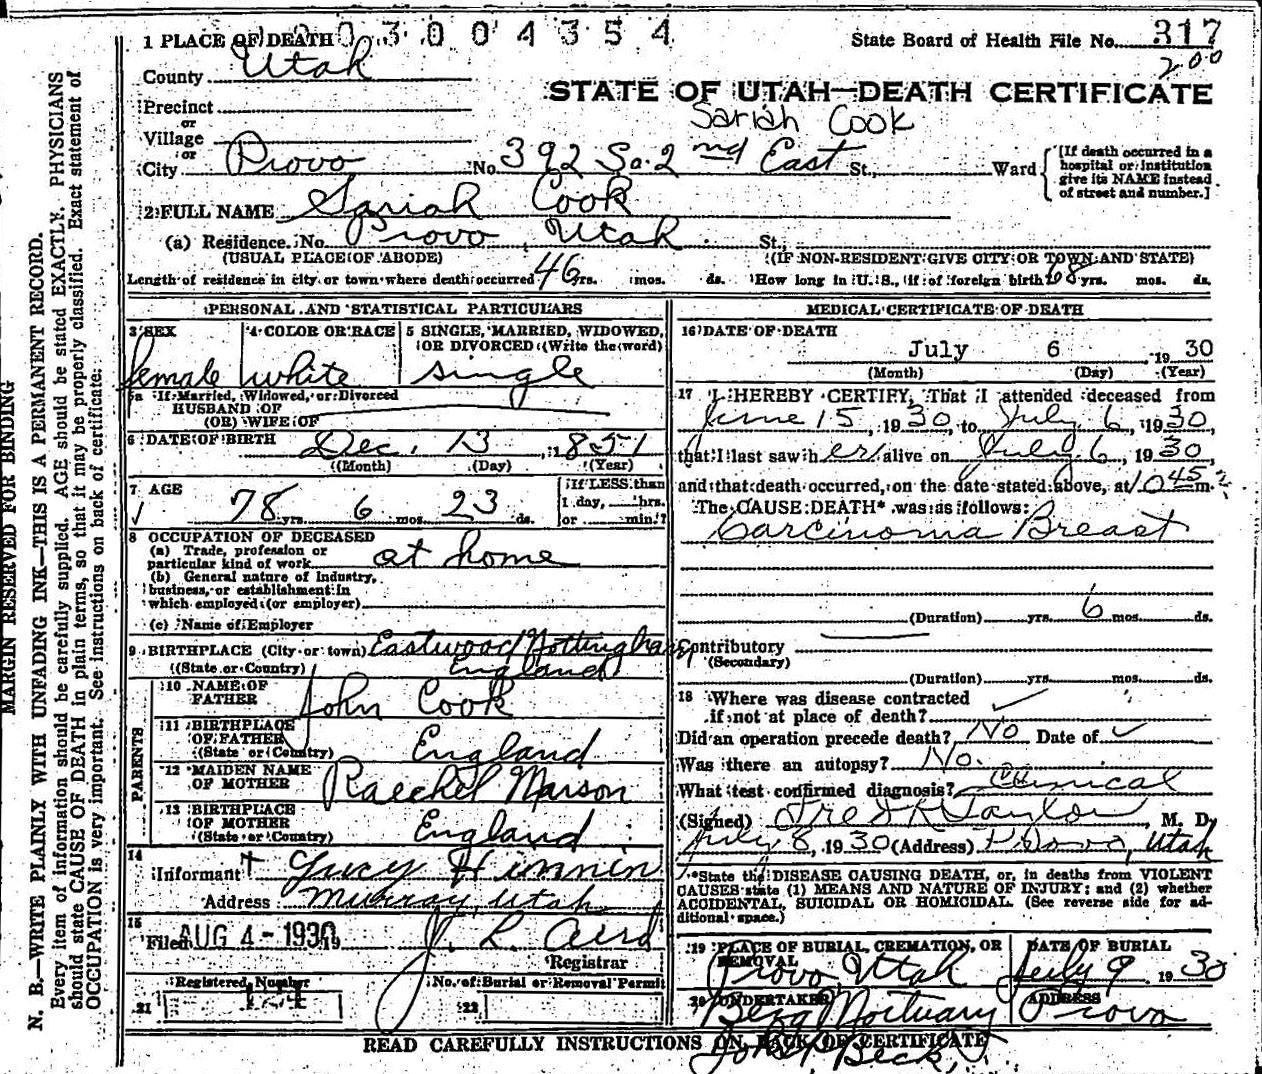 003004354
State Board of Health File No. 317
200
1 PLACE OF DEATH
County Utah
STATE OF UTAH—DEATH CERTIFICATE
Sariah Cook
Precinct
or
Village
or
City Provo No. 392 So. 2nd East St., Ward
[If death occurred in a hospital or institution give its NAME instead of street and number.]
2 FULL NAME Sariah Cook
(a) Residence. No. Provo, Utah St.,
(USUAL PLACE OF ABODE) (IF NON-RESIDENT GIVE CITY OR TOWN AND STATE)
Length of residence in city or town where death occurred 46 yrs. mos. ds. How long in U. S., if of foreign birth 68 yrs. mos. ds.
PERSONAL AND STATISTICAL PARTICULARS
3 SEX
female
4 COLOR OR RACE
white
5 SINGLE, MARRIED, WIDOWED, OR DIVORCED (Write the word)
single
5a If Married, Widowed, or Divorced
HUSBAND OF
(OR) WIFE OF
6 DATE OF BIRTH Dec. 13, 1851
(Month) (Day) (Year)
7 AGE
78 yrs. 6 mos. 23 ds.
If LESS than
1 day, hrs.
or min.?
8 OCCUPATION OF DECEASED
(a) Trade, profession or
particular kind of work at home
(b) General nature of industry,
business, or establishment in
which employed (or employer)
(c) Name of Employer
9 BIRTHPLACE (City or town) Eastwood Nottingham
(State or Country) England
PARENTS
10 NAME OF
FATHER John Cook
11 BIRTHPLACE
OF FATHER
(State or Country) England
12 MAIDEN NAME
OF MOTHER Raechel Marson
13 BIRTHPLACE
OF MOTHER
(State or Country) England
14
Informant Lucy
Address Murray, Utah
15
Filed AUG 4 - 1930 J. L. Aird
Registrar
Registered Number
21 124
No. of Burial or Removal Permit
22
MEDICAL CERTIFICATE OF DEATH
16 DATE OF DEATH
July 6 1930
(Month) (Day) (Year)
17 I HEREBY CERTIFY, That I attended deceased from
June 15, 1930, to July 6, 1930,
that I last saw h er alive on July 6, 1930,
and that death occurred, on the date stated above, at 10 45 m.
The CAUSE DEATH* was as follows:
Carcinoma Breast
(Duration) yrs. 6 mos. ds.
Contributory
(Secondary)
(Duration) yrs. mos. ds.
18 Where was disease contracted
if not at place of death?
Did an operation precede death? No Date of
Was there an autopsy? No.
What test confirmed diagnosis? Clinical
(Signed) Fred R Taylor, M. D.
July 8, 1930 (Address) Provo, Utah
*State the DISEASE CAUSING DEATH, or, in deaths from VIOLENT
CAUSES state (1) MEANS AND NATURE OF INJURY; and (2) whether
ACCIDENTAL, SUICIDAL OR HOMICIDAL. (See reverse side for additional space.)
19 PLACE OF BURIAL, CREMATION, OR REMOVAL
Provo, Utah
DATE OF BURIAL
July 9 1930
20 UNDERTAKER
Berg Mortuary
ADDRESS
Provo
READ CAREFULLY INSTRUCTIONS ON BACK OF CERTIFICATE
Beck
MARGIN RESERVED FOR BINDING
N. B.—WRITE PLAINLY WITH UNFADING INK—THIS IS A PERMANENT RECORD.
Every item of information should be carefully supplied. AGE should be stated EXACTLY. PHYSICIANS
should state CAUSE OF DEATH in plain terms, so that it may be properly classified. Exact statement of
OCCUPATION is very important. See instructions on back of certificate.